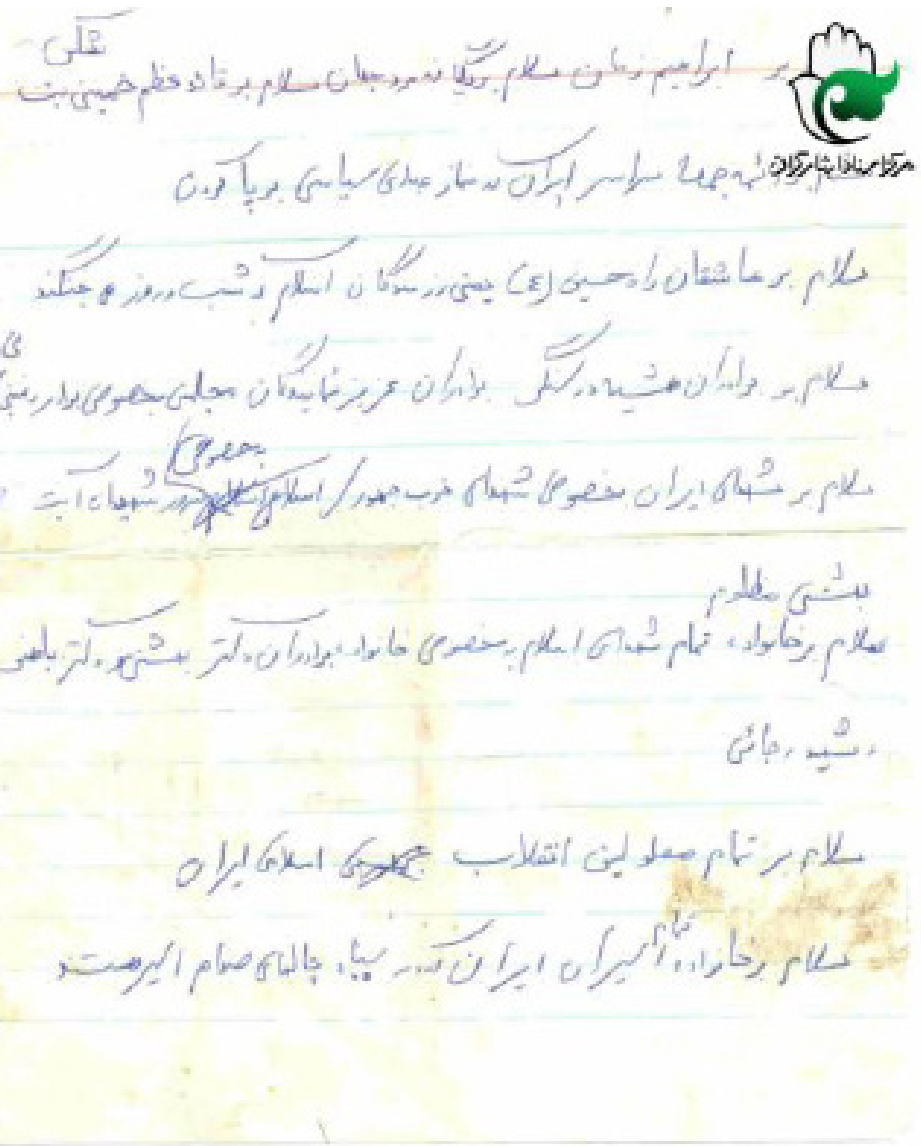 شکنی
بر ابراهیم زمان سلام بر یگانه مرد جهان سلام بر قائد عظم خمینی بت
ائمه جمعهٔ سراسر ایران که نماز عبادی سیاسی بر پا کردن
سلام بر عاشقان راه حسین (ع) یعنی رزمندگان اسلام که شب و روز می جنگند
سلام بر برادران همیشه در سنگر برادران عزیز نمایندگان مجلس بخصوص برادر
سلام بر شهدای ایران بخصوص شهدای حزب جمهوری اسلامی بخصوص شهید آیت
بهشتی مظلوم
سلام بر خانواده تمام شهدای اسلام بخصوص خانواده برادران دکتر بهشتی و دکتر باهنر
و شهید رجائی
سلام بر تمام معلولین انقلاب اسلامی ایران
سلام بر خانواده تمام اسیران ایران که در سیاه چالهای صدام اسیر هستند